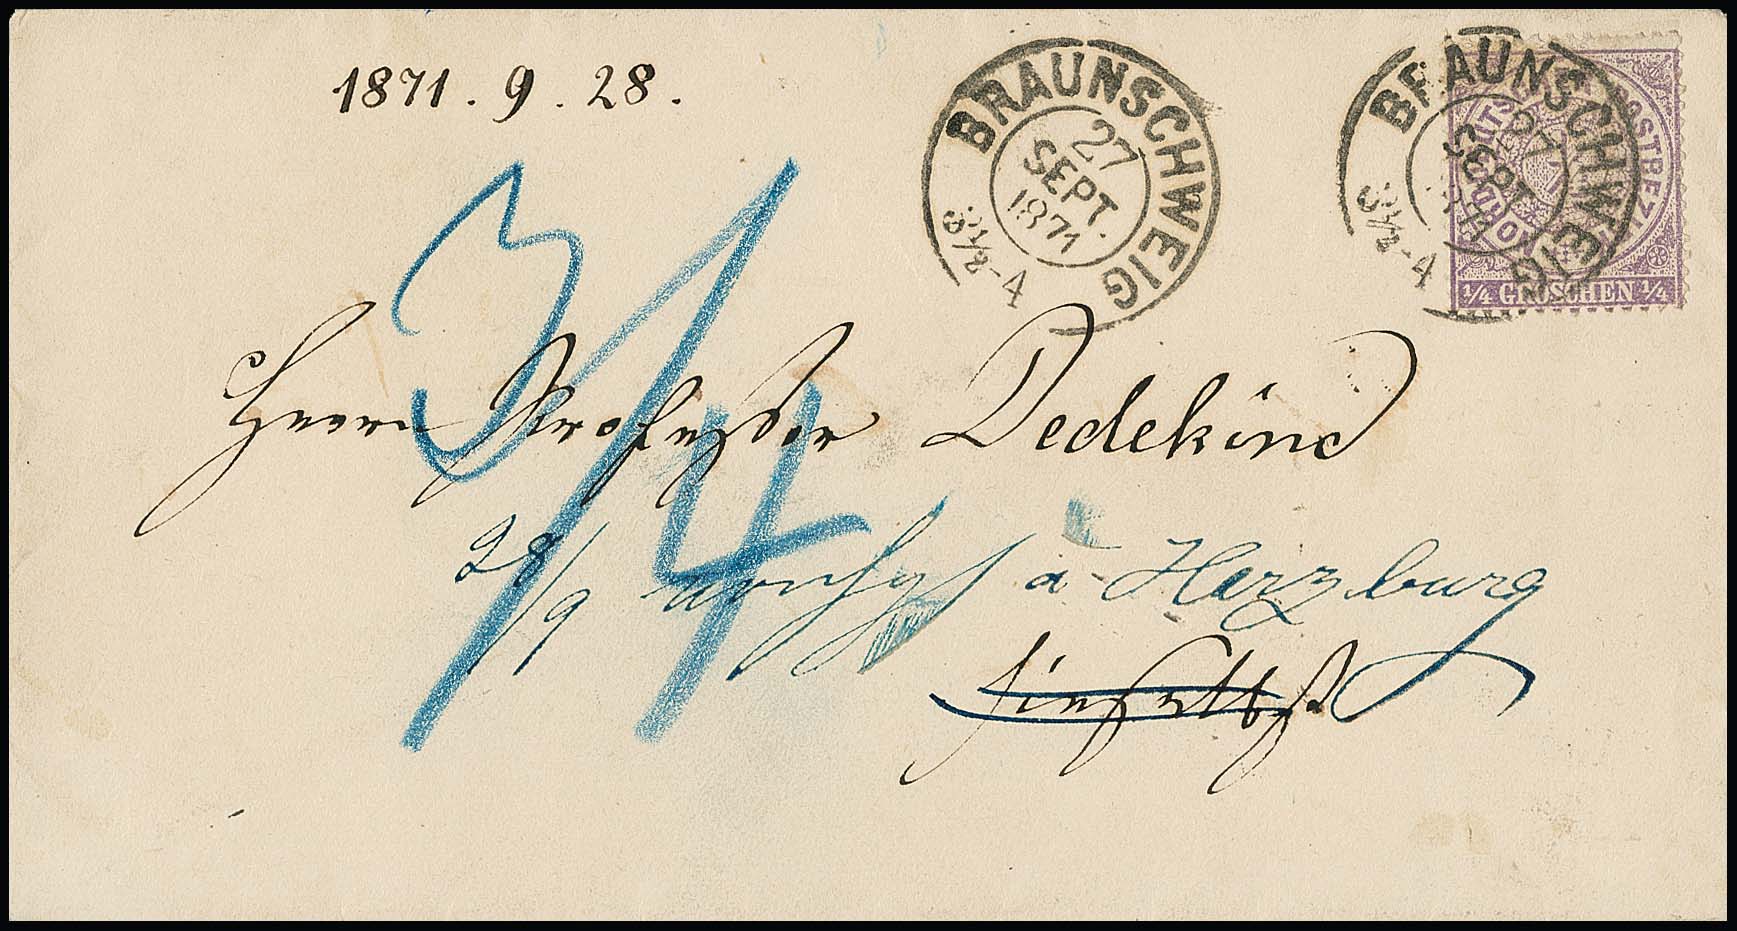 1871. 9. 28.
BRAUNSCHWEIG
27
SEPT.
1871
3½-4
BRAUNSCHWEIG
27
SEPT.
1871
3½-4
NORDDEUTSCHER POSTBEZIRK
1/4 GROSCHEN 1/4
3/4
Herrn Professor Dedekind
28/9 a Harzburg
hieselbst